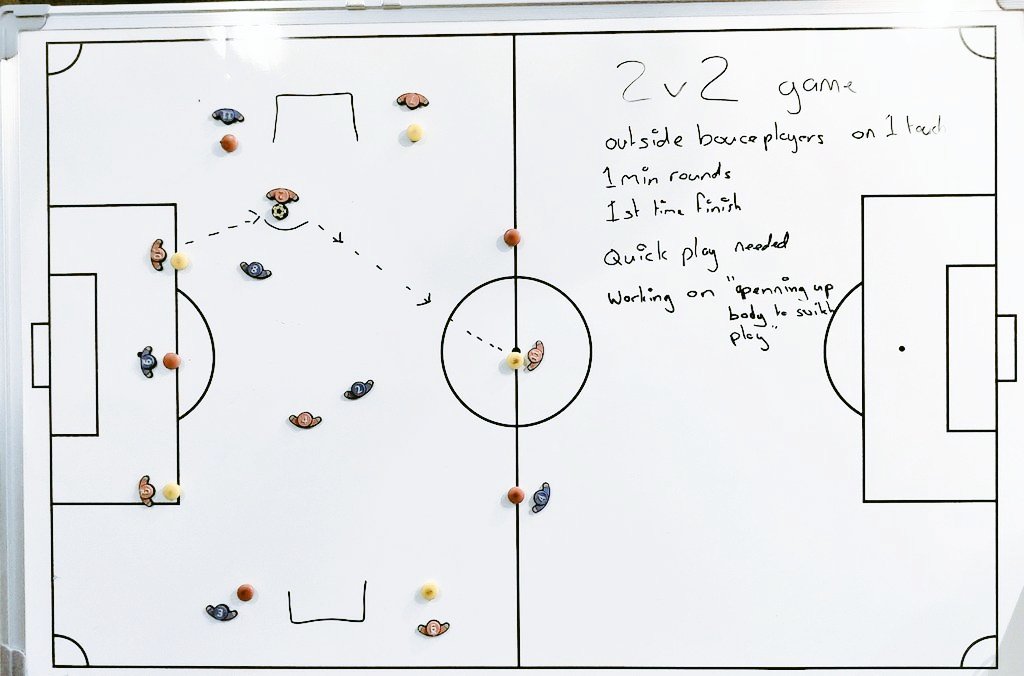 2v2 game
outside bouceplayers on 1 touch
1 min rounds
1st time finish
Quick play needed
Working on "openning up
body to switch
play"
11
8
2
3